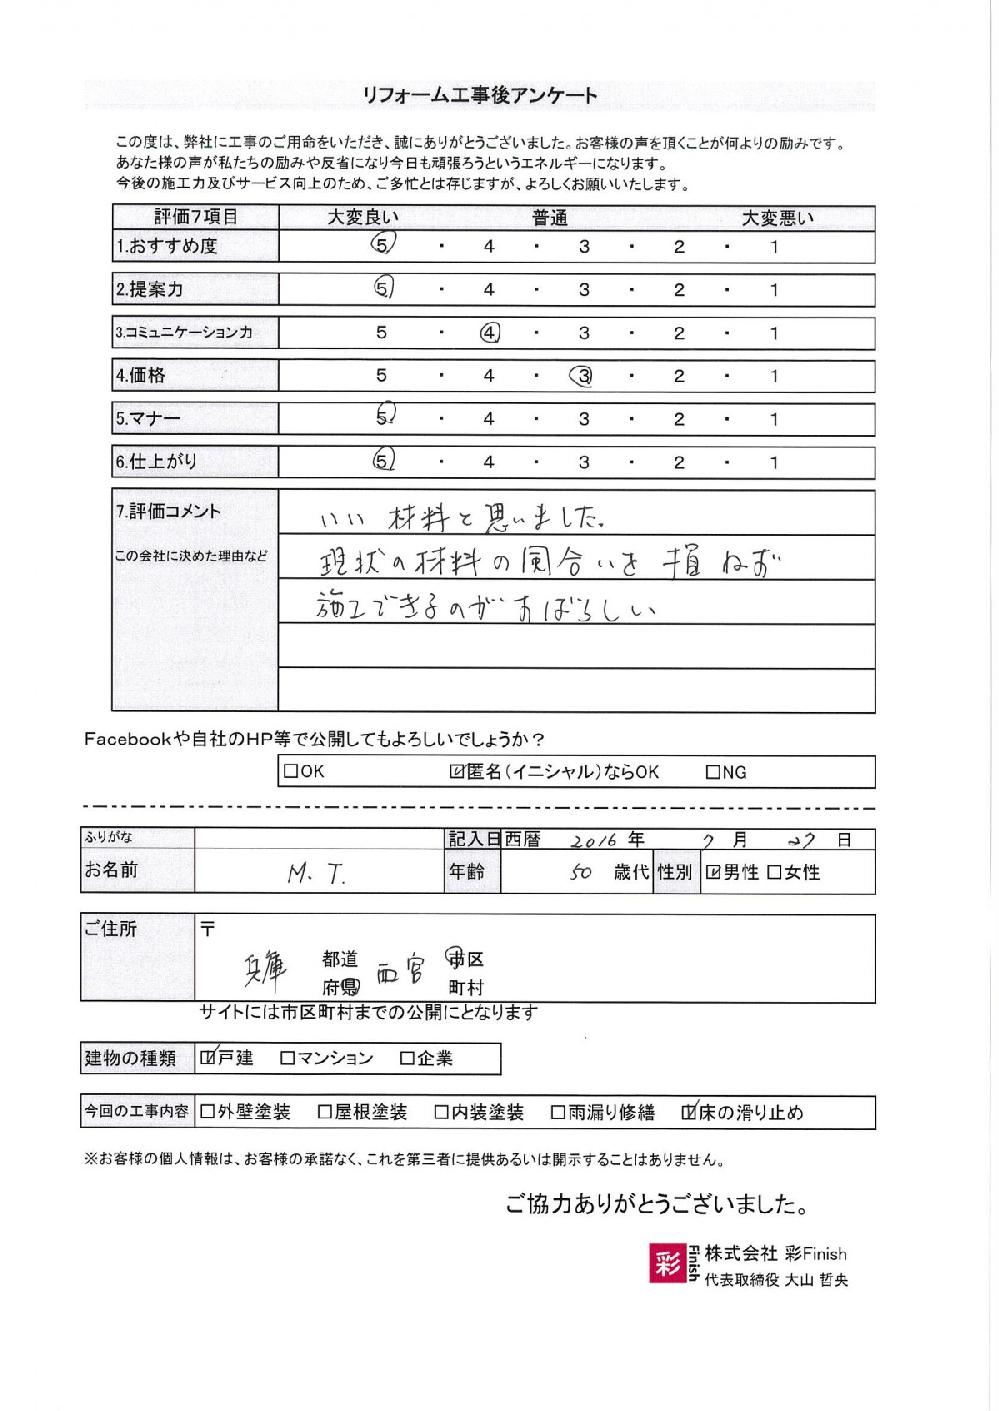 リフォーム工事後アンケート
この度は、弊社に工事のご用命をいただき、誠にありがとうございました。お客様の声を頂くことが何よりの励みです。
あなた様の声が私たちの励みや反省になり今日も頑張ろうというエネルギーになります。
今後の施工力及びサービス向上のため、ご多忙とは存じますが、よろしくお願いいたします。
評価7項目 大変良い 普通 大変悪い
1.おすすめ度 5 ・ 4 ・ 3 ・ 2 ・ 1
2.提案力 5 ・ 4 ・ 3 ・ 2 ・ 1
3.コミュニケーション力 5 ・ 4 ・ 3 ・ 2 ・ 1
4.価格 5 ・ 4 ・ 3 ・ 2 ・ 1
5.マナー 5 ・ 4 ・ 3 ・ 2 ・ 1
6.仕上がり 5 ・ 4 ・ 3 ・ 2 ・ 1
7.評価コメント いい材料と思いました。
この会社に決めた理由など 現状の材料の風合いを損ねず
施工できるのがすばらしい
Facebookや自社のHP等で公開してもよろしいでしょうか？
□OK ☑匿名（イニシャル）ならOK □NG
ふりがな 記入日 西暦 2016 年 7 月 27 日
お名前 M.T. 年齢 50 歳代 性別 ☑男性 □女性
ご住所 〒
兵庫 都道 西宮 市区
府県 町村
サイトには市区町村までの公開にとなります
建物の種類 ☑戸建 □マンション □企業
今回の工事内容 □外壁塗装 □屋根塗装 □内装塗装 □雨漏り修繕 ☑床の滑り止め
※お客様の個人情報は、お客様の承諾なく、これを第三者に提供あるいは開示することはありません。
ご協力ありがとうございました。
彩 Finish 株式会社 彩Finish
代表取締役 大山 哲央